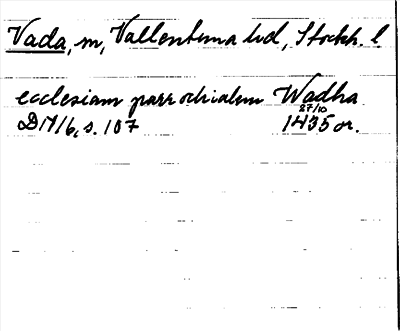 Vada, m, Vallentuna hd, Stockh. l
ecclesiam parrochialem Wadha
27/10
DN 16, s. 107 1435 or.